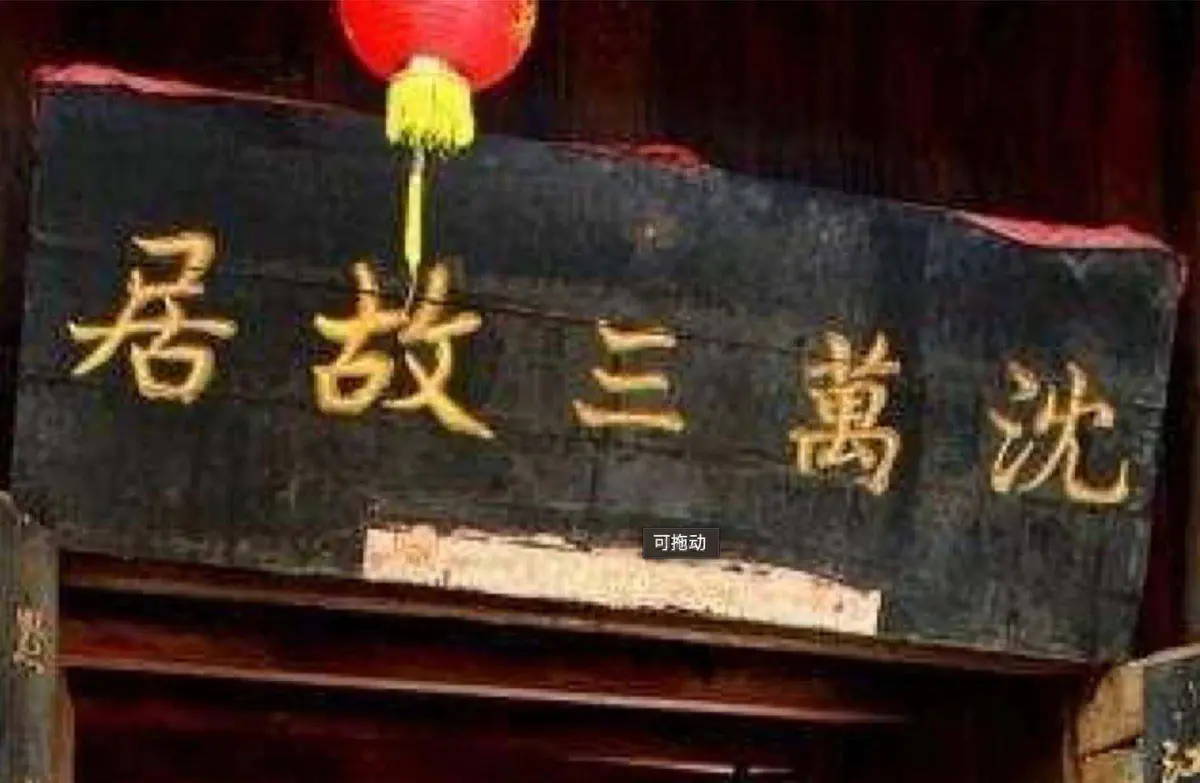 沈萬三故居
可拖动